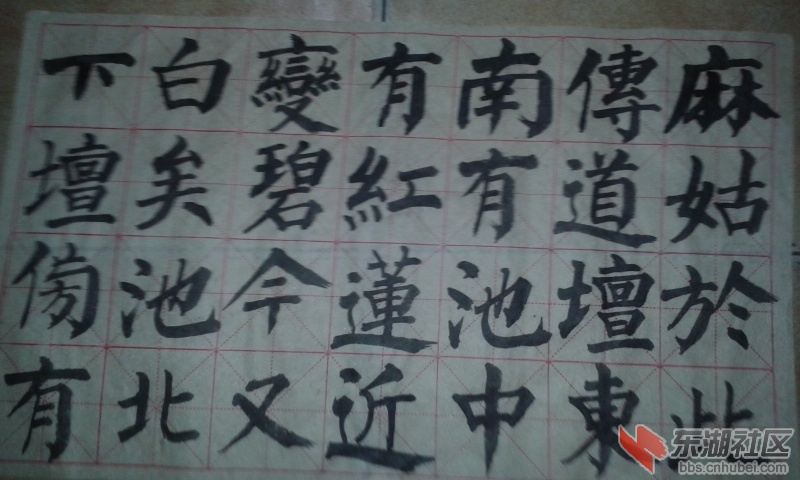 麻姑於此
傳道壇東
南有池中
有紅蓮近
變碧今又
白矣池北
下壇傍有
东湖社区
bbs.cnhubei.com